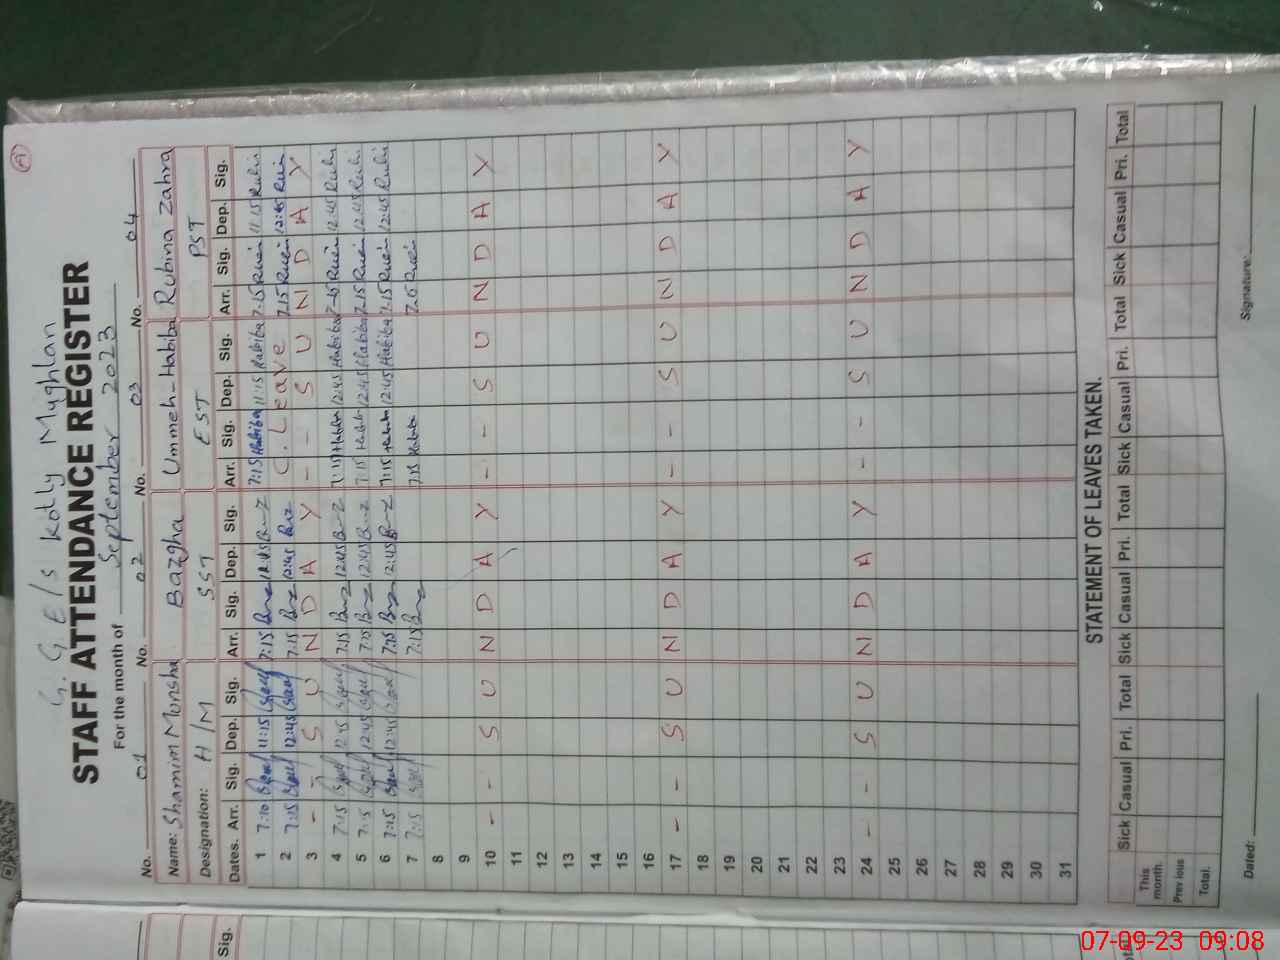 G. G. E/S Kotly Mughlan
STAFF ATTENDANCE REGISTER
For the month of September 2023
No. 01 No. 02 No. 03 No. 04
Name: Shamim Monsha Bazgha Ummeh-Habiba Rubina Zahra
Designation: H/M SST EST PST
Dates. Arr. Sig. Dep. Sig. Arr. Sig. Dep. Sig. Arr. Sig. Dep. Sig. Arr. Sig. Dep. Sig.
1 7:10 11:15 7:15 12:45 7:15 Habiba 11:15 Habiba 7:15 11:15
2 7:15 12:45 7:15 12:45 C. Leave 7:15 12:45
3 - - S U N D A Y - - S U N D A Y
4 7:15 12:45 7:15 12:45 7:15 12:45 Habiba 7:15 12:45
5 7:15 12:45 7:15 12:45 7:15 12:45 Habiba 7:15 12:45
6 7:15 12:45 7:15 12:45 7:15 12:45 Habiba 7:15 12:45
7 7:15 7:15 7:15
8
9
10 - - S U N D A Y - - S U N D A Y
11
12
13
14
15
16
17 - - S U N D A Y - - S U N D A Y
18
19
20
21
22
23
24 - - S U N D A Y - - S U N D A Y
25
26
27
28
29
30
31
STATEMENT OF LEAVES TAKEN.
Sick Casual Pri. Total Sick Casual Pri. Total Sick Casual Pri. Total Sick Casual Pri. Total
This month.
Previous
Total.
Dated: Signature:
Sig.
07-09-23 09:08